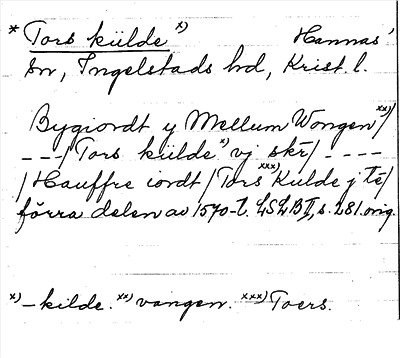 * Tors külde x) Hannas
sn, Ingelstads hd, Krist. l.
Bygiordt y Mellum Wongen xx)/
---/Tors külde x) vj skr/ ----
/Hauffre iordt/Tors xxx) Kulde j tr/
förra delen av 1570-t. LSLB II, s. 281. orig.
x) -kilde. xx) vangen. xxx) Toers.